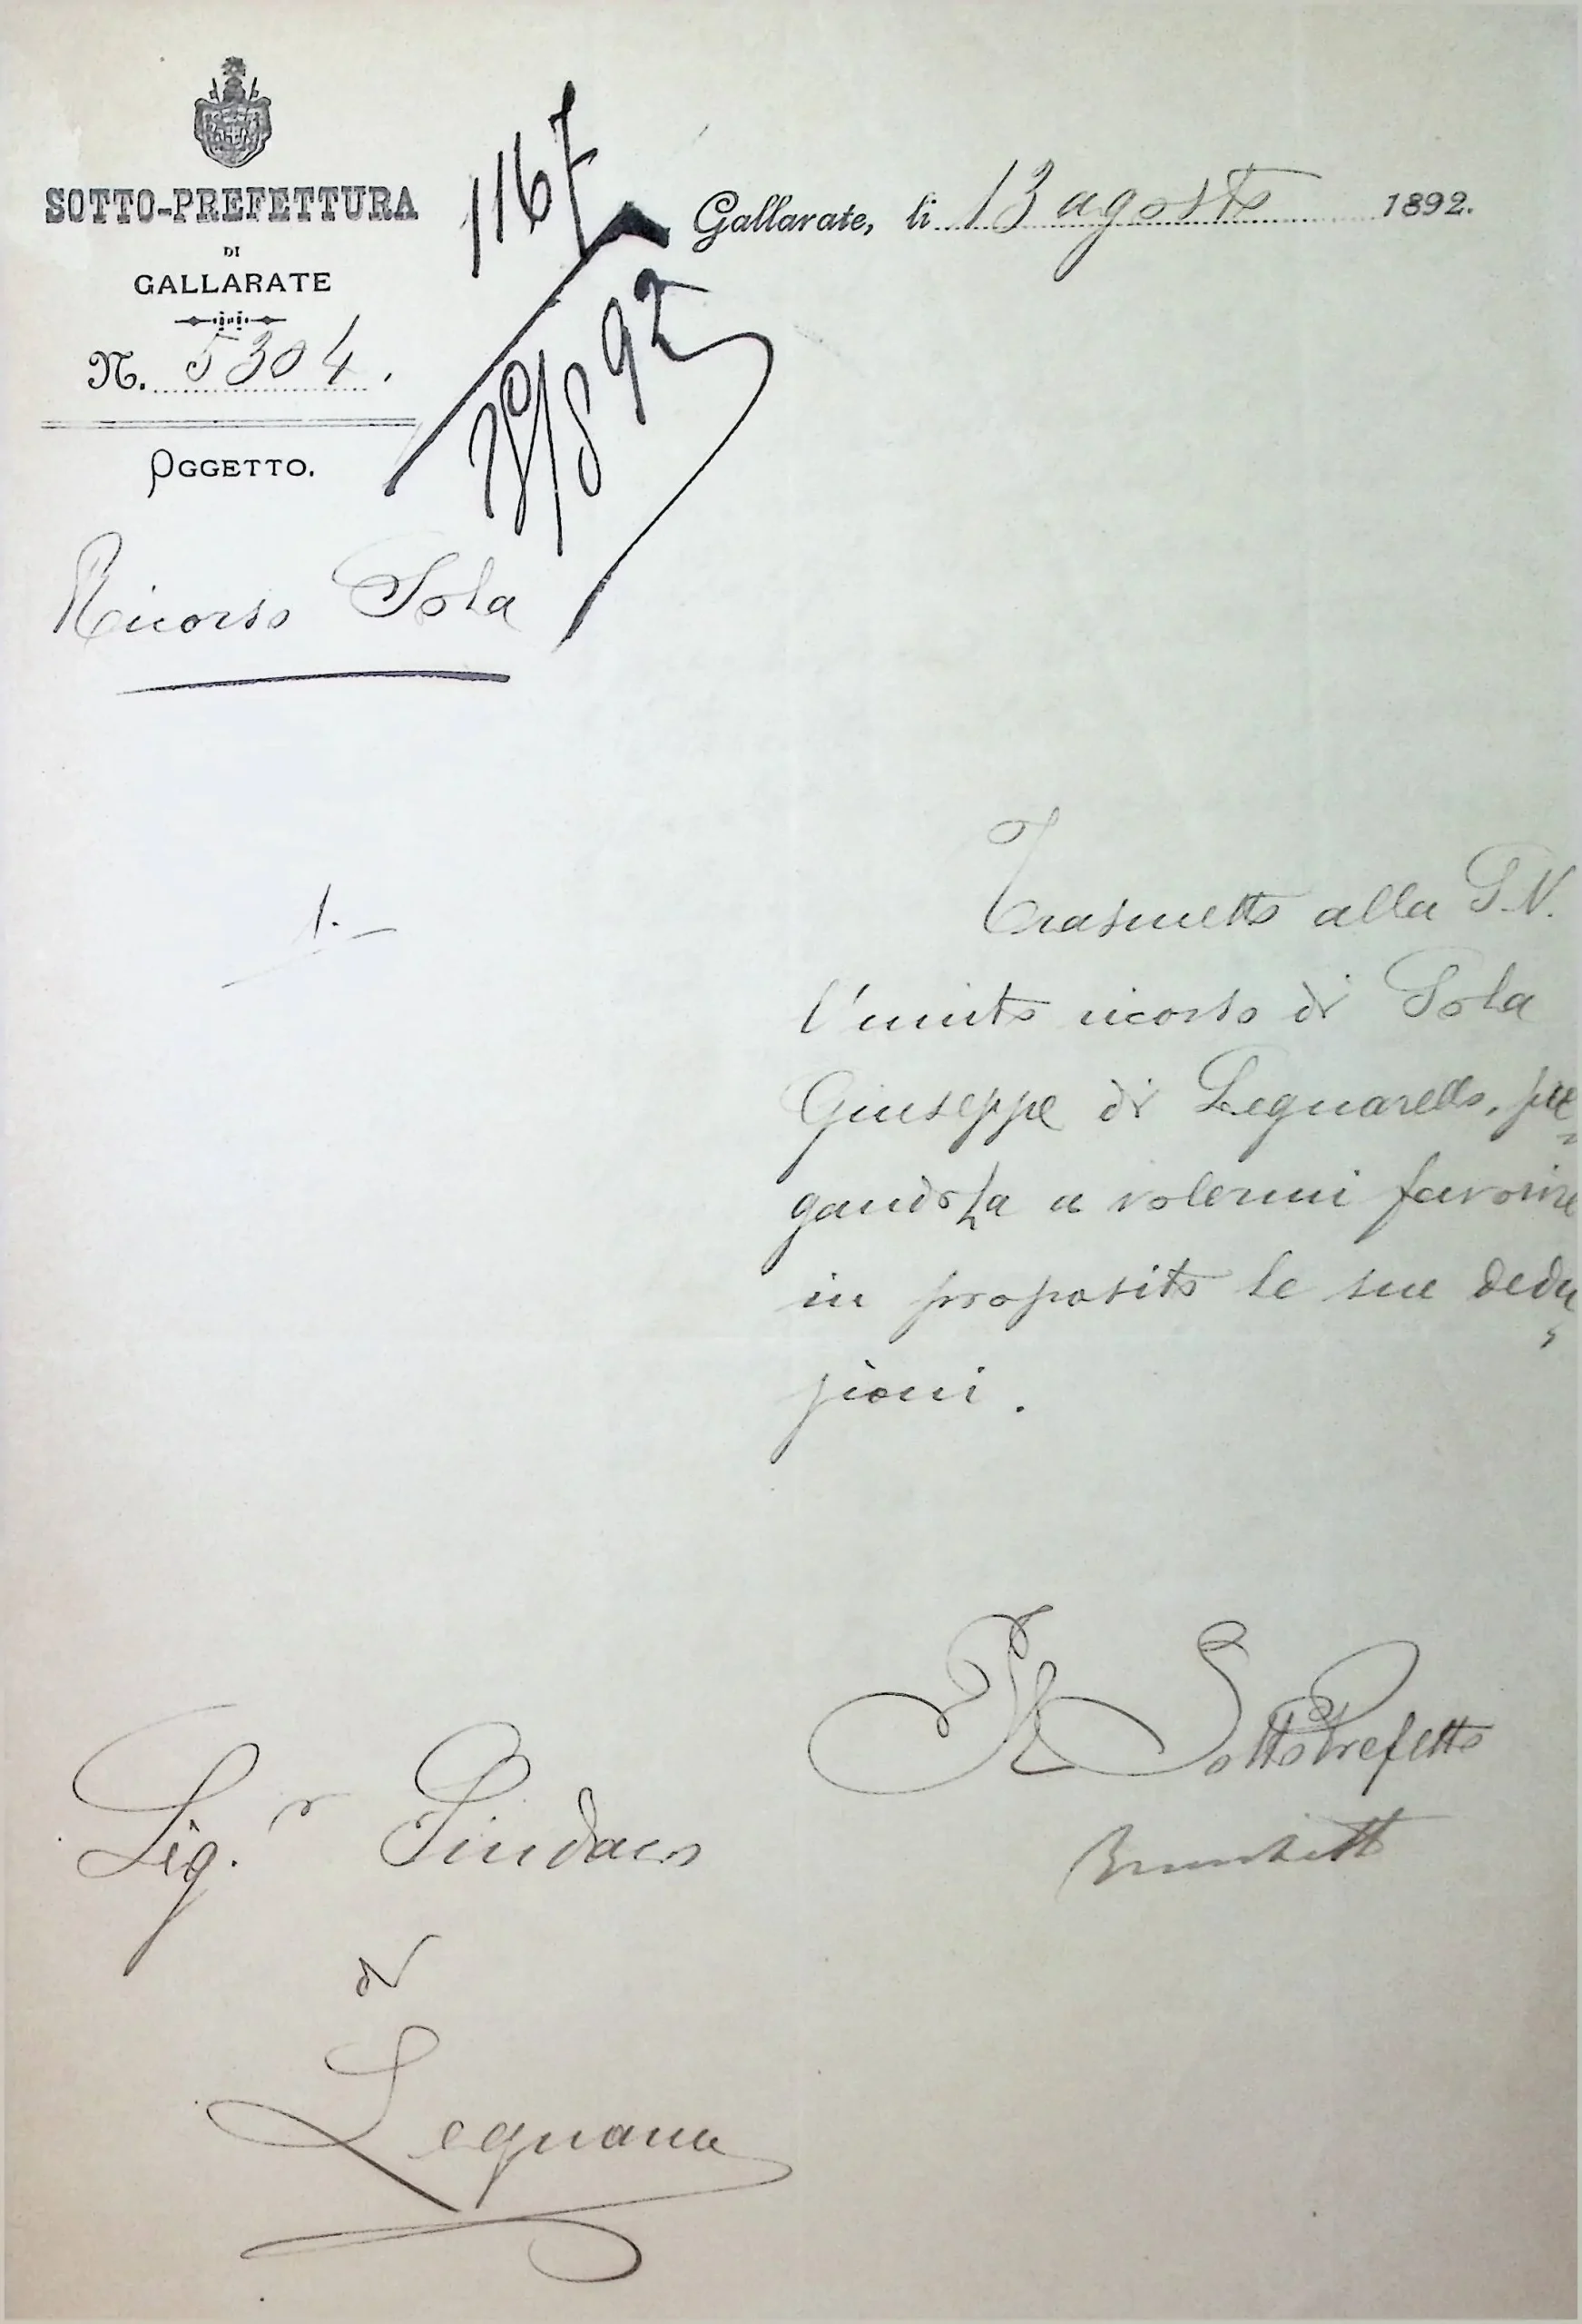 SOTTO-PREFETTURA
DI
GALLARATE
N. 5304.
OGGETTO.
Ricorso Sola
1167
92
Gallarate, li 13 agosto 1892.
1.-
Trasmetto alla S.V.
l'unito ricorso di Sola
Giuseppe di Legnarello, pre=
gandola a volermi favorire
in proposito le sue dedu=
zioni.
Il SottoPrefetto
Sig.r Sindaco
di
Legnano